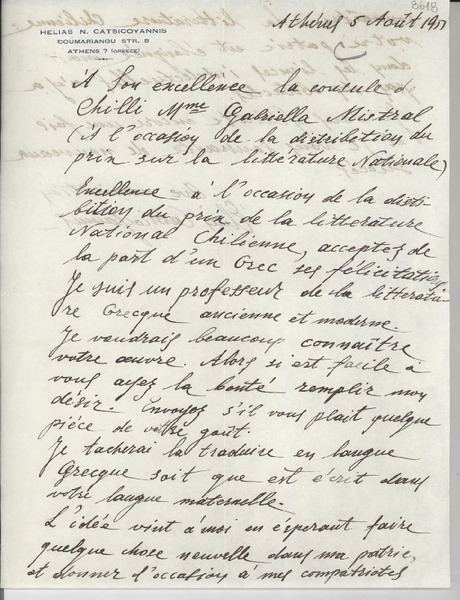 8618
HELIAS N. CATSICOYANNIS
COUMARIANOU STR. 8
ATHENS 7 (GREECE)
Athènes 5 Août 1951
A Son excellence la consule d
Chilli Mme Gabriella Mistral
(A l'occasion de la distribution du
prin sur la littérature Nationale)
Excellence - à l'occasion de la distri-
bition du prin de la litterature
National Chilienne, acceptez de
la part d'un Grec ses félicitations
Je suis un professeur de la litteratu-
re Grecque ancienne et moderne.
Je voudrais beaucoup connaître
votre œuvre. Alors si est facile à
vous ayez la bonté remplir mon
désir. Envoyez s'il vous plait quelque
pièce de votre goût.
Je tacherai la traduire en langue
Grecque soit que est écrit dans
votre langue maternelle.-
L'idée vint à moi en ésperant faire
quelque chose neuvelle dans ma patrie,
et donner l'occasion à mes compatriotes